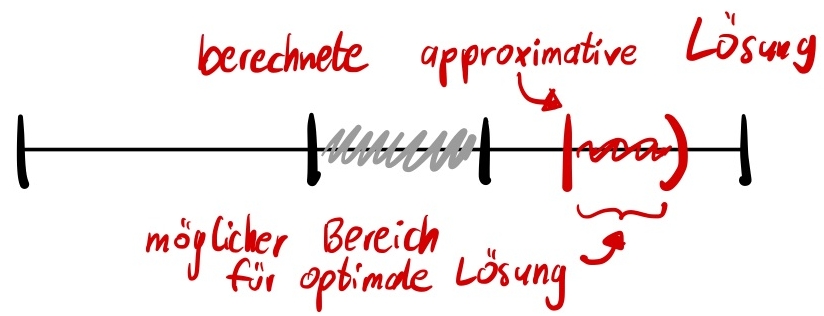 berechnete approximative Lösung
möglicher Bereich
für optimale Lösung